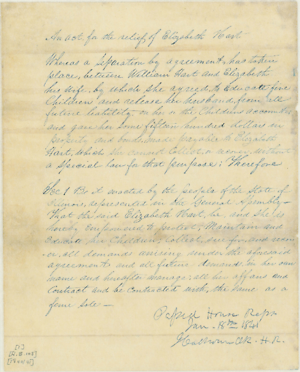 An act for the relief of Elizabeth Hart
Whereas a separation by agreement, has taken
place, between William Hart and Elizabeth
his wife. by which she agreed to educate five
Children and release her husband from all
future liability on her or the Childrens account
and gave her some fifteen hundred dollars in
property and
Hart, which she cannot collect or manage without
a special law for that purpose: Therefore
Sec 1 Be it enacted by the people of the State of
Illinois, represented in the General Assembly
That the said Elizabeth Hart, be and she is
hereby empowered to protect, Maintain and
her Children; collect, sue for and
all demands arising under the aforesaid
agreement and all future demands in her own
name and hereafter manage all her affairs and
contract and be contracted with, the same as a
feme sole —
House Reps
Jan. 15th 1841
H.R.